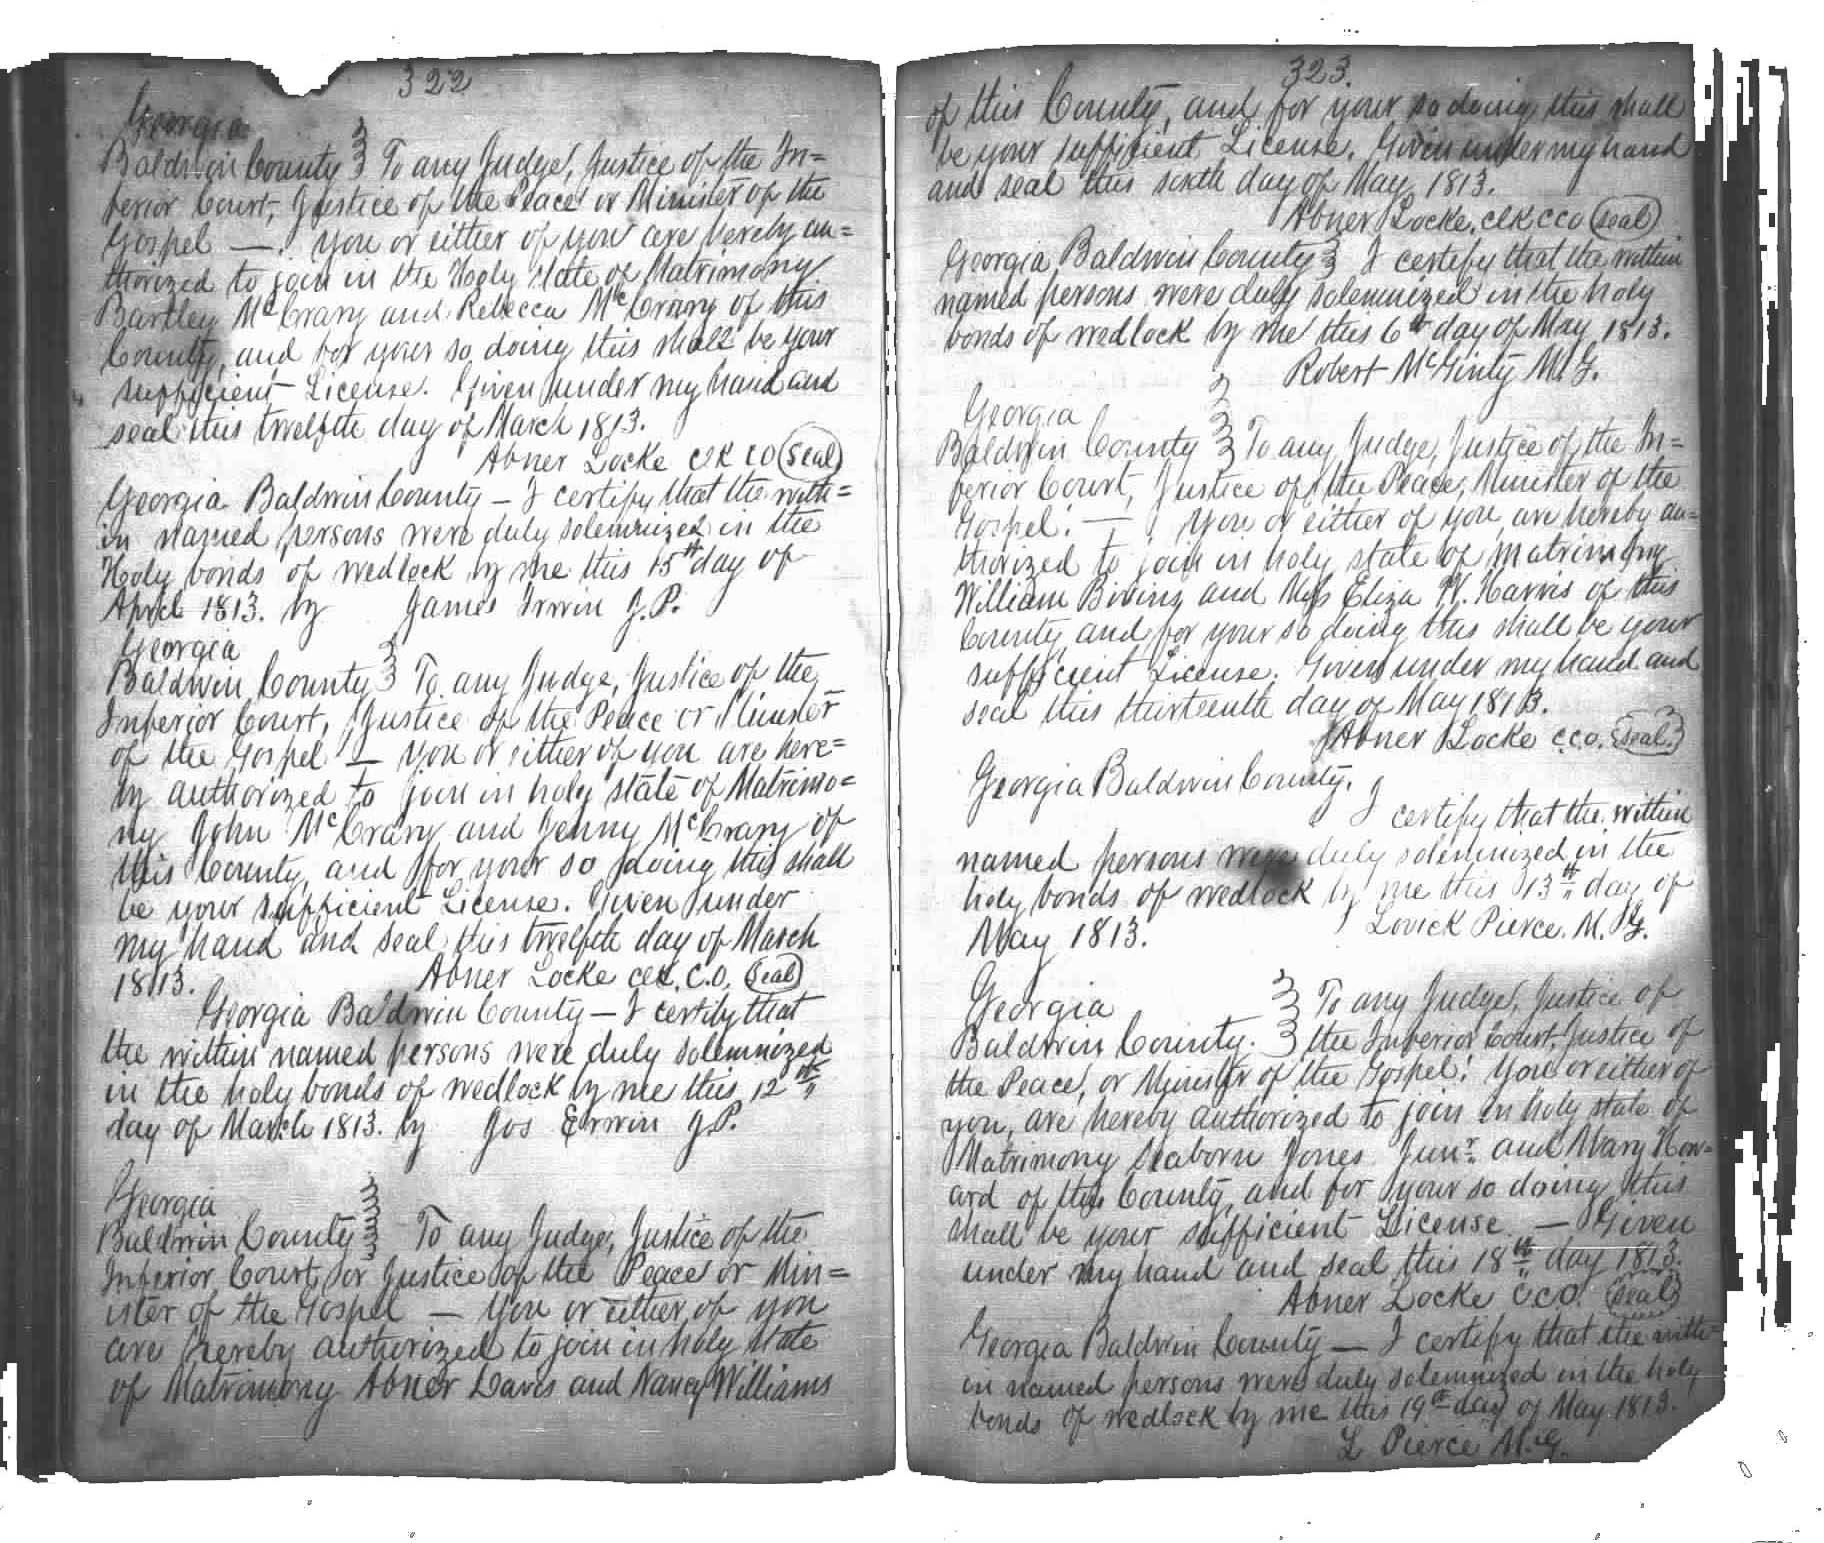 322
Georgia
Baldwin County } To any Judge, Justice of the In=
ferior Court, Justice of the Peace or Minister of the
Gospel — . You or either of you are hereby au=
thorized to join in the Holy State of Matrimony
Bartley McCrary and Rebecca McCrary of this
County, and for your so doing this shall be your
sufficient License. Given under my hand and
seal this twelfth day of March 1813.
Abner Locke Clk CO (Seal)
Georgia Baldwin County — I certify that the with=
in named persons were duly solemnized in the
Holy bonds of wedlock by me this 15th day of
April 1813. by James Irwin J.P.
Georgia
Baldwin County } To any Judge, Justice of the
Inferior Court, Justice of the Peace or Minister
of the Gospel — You or either of you are here=
by authorized to join in holy state of Matrimo=
ny John McCrary and Jenny McCrary of
this County, and for your so doing this shall
be your sufficient License. Given under
my hand and seal this twelfth day of March
1813. Abner Locke clk, C.O. (Seal)
Georgia Baldwin County — I certify that
the within named persons were duly solemnized
in the holy bonds of wedlock by me this 12th
day of March 1813. by Jos Erwin J.P.
Georgia
Baldwin County } To any Judge, Justice of the
Inferior Court, or Justice of the Peace or Min=
ister of the Gospel — You or either of you
are hereby authorized to join in holy state
of Matrimony Abner Davis and Nancy Williams
323.
of this County, and for your so doing this shall
be your sufficient License. Given under my hand
and seal this sixth day of May 1813.
Abner Locke, Clk CCO (Seal)
Georgia Baldwin County } I certify that the within
named persons were duly solemnized in the holy
bonds of wedlock by me this 6th day of May 1813.
Robert McGinty M.G.
Georgia
Baldwin County } To any Judge, Justice of the In=
ferior Court, Justice of the Peace, Minister of the
Gospel. — You or either of you are hereby au=
thorized to join in holy state of matrimony
William Bivins and Miss Eliza W. Harris of this
County, and for your so doing this shall be your
sufficient License. Given under my hand and
seal this thirteenth day of May 1813.
Abner Locke C.C.O. (Seal.)
Georgia Baldwin County.
I certify that the within
named persons were duly solemnized in the
holy bonds of wedlock by me this 13th day of
May 1813. Lovick Pierce. M. G.
Georgia } To any Judge, Justice of
Baldwin County. } the Inferior Court, Justice of
the Peace, or Minister of the Gospel. You or either of
you, are hereby authorized to join in holy state of
Matrimony Seaborn Jones Junr. and Mary How=
ard of this County, and for your so doing this
shall be your sufficient License — Given
under my hand and seal this 18th day 1813.
Abner Locke CCO. (Seal)
Georgia Baldwin County — I certify that the with=
in named persons were duly solemnized in the holy
bonds of wedlock by me this 19th day of May 1813.
L Pierce M.G.